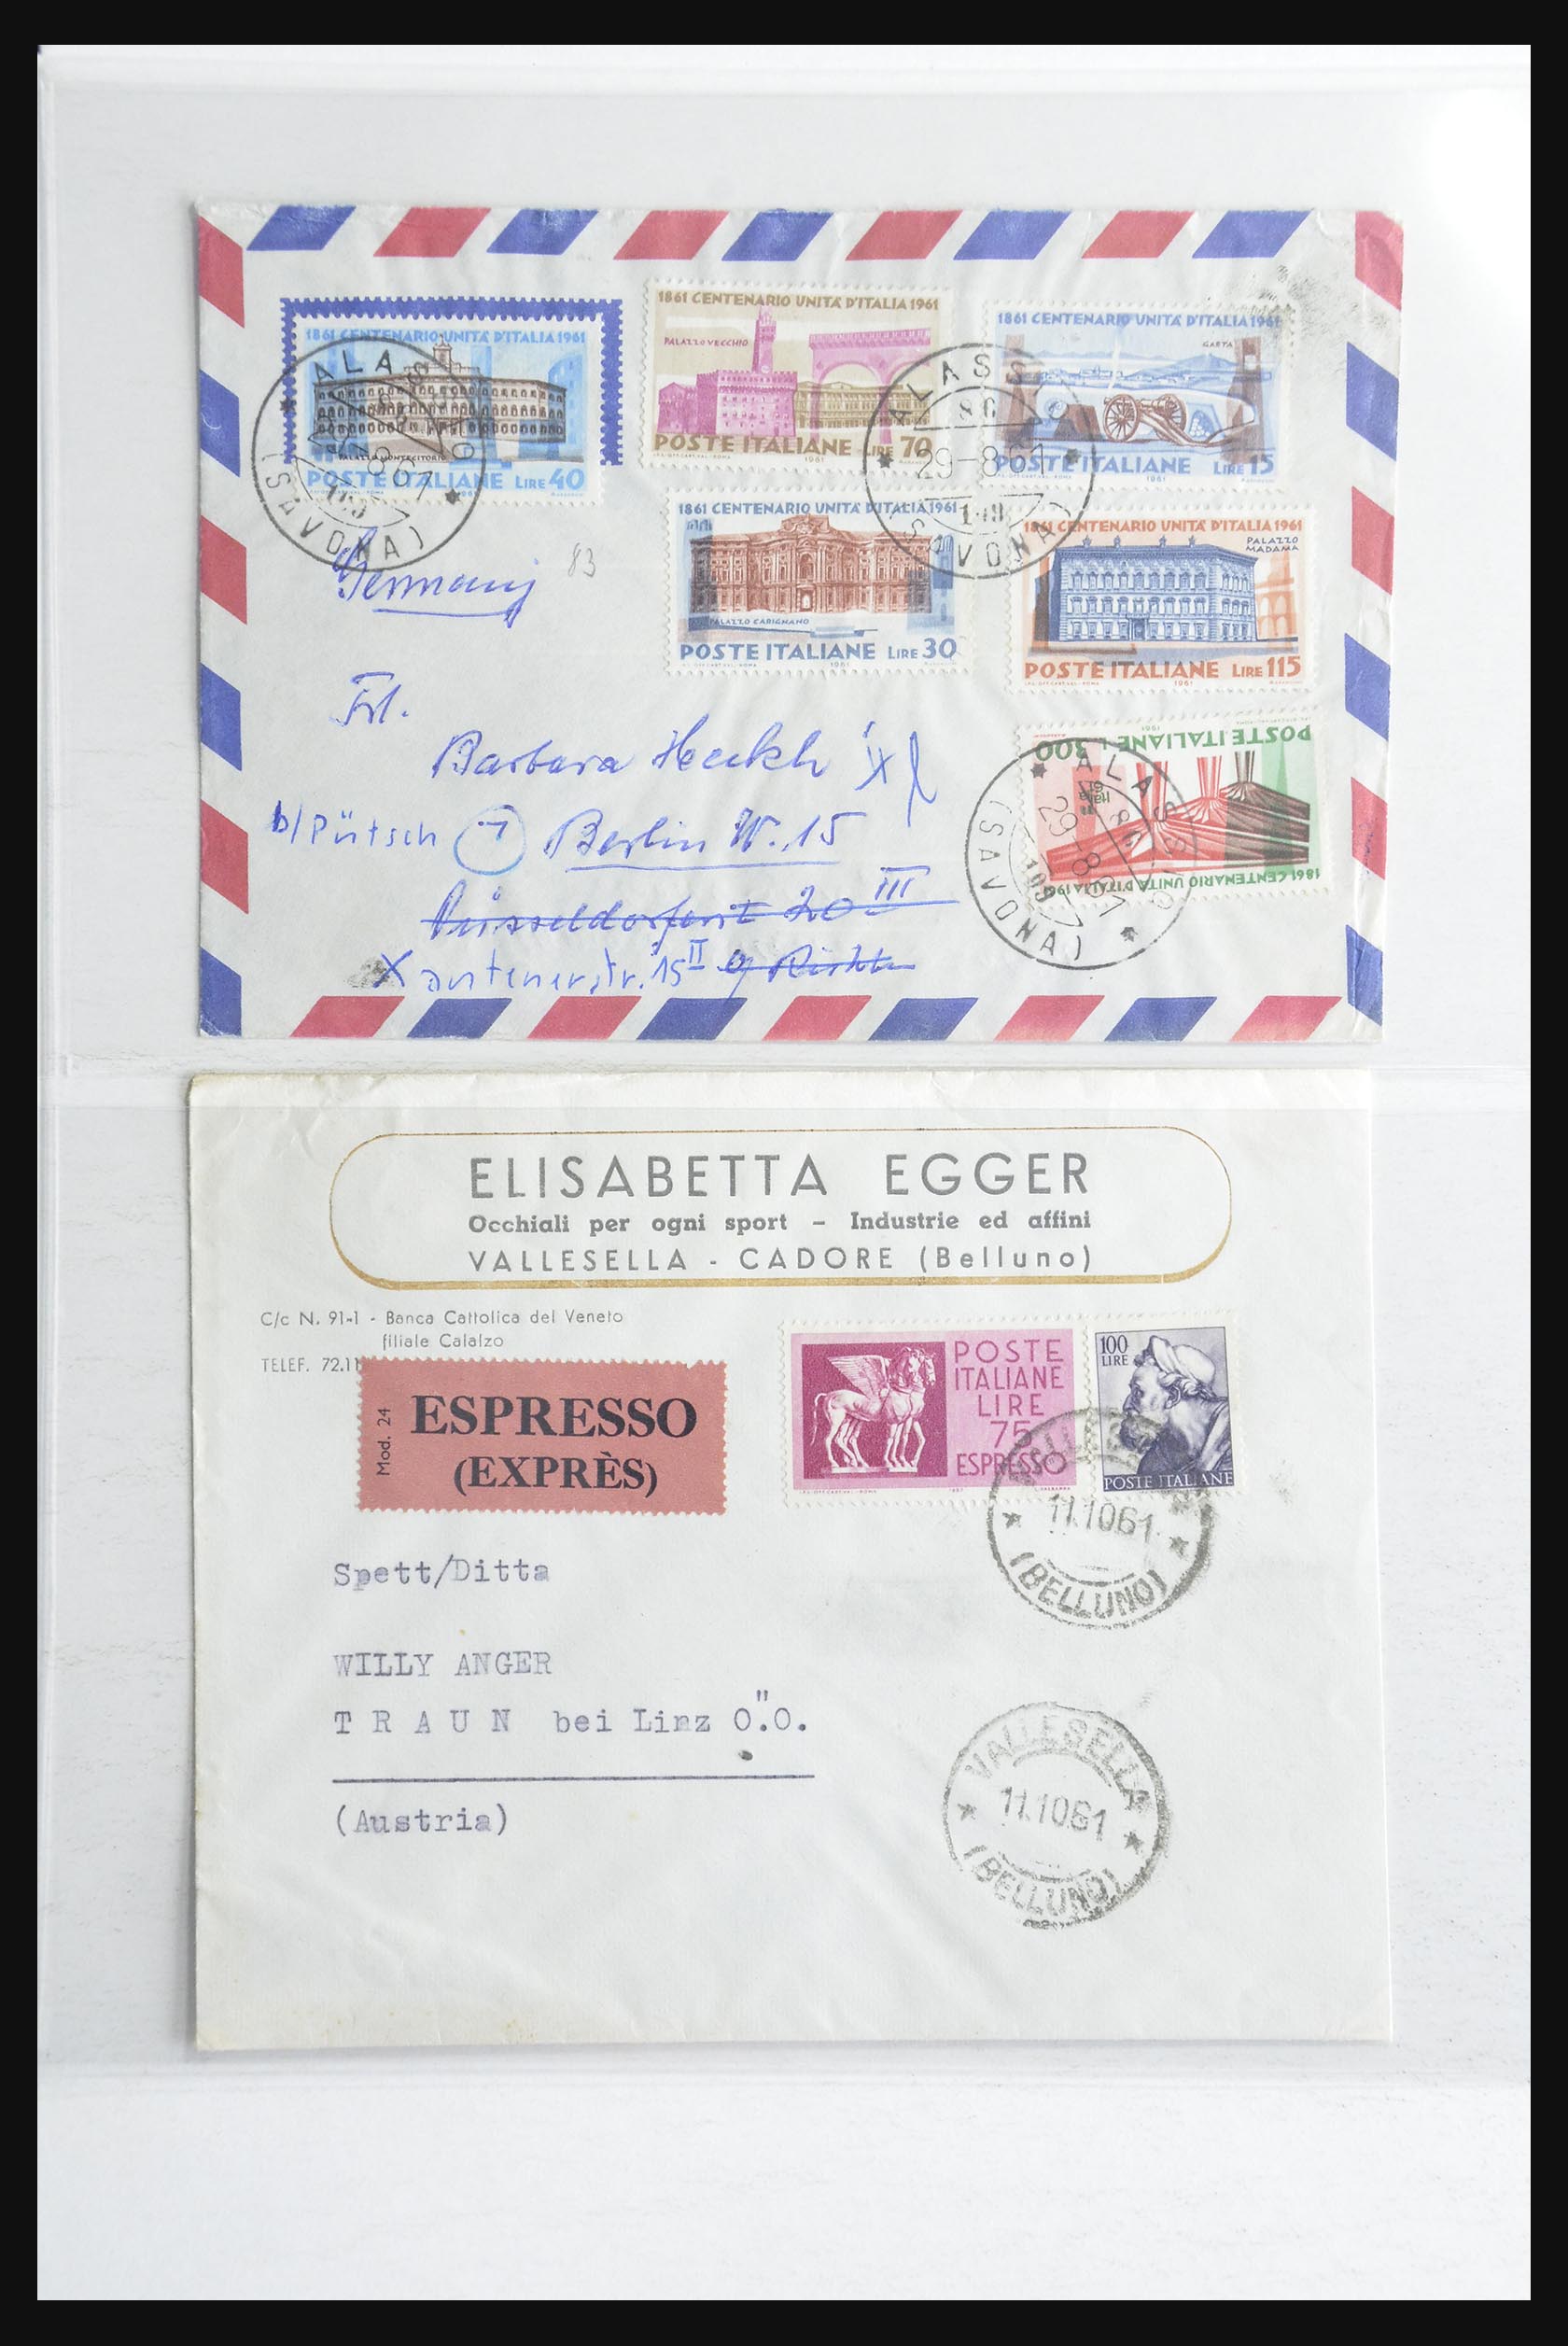 1861 CENTENARIO UNITÀ D'ITALIA 1961
PALAZZO MONTECITORIO
POSTE ITALIANE LIRE 40
1861 CENTENARIO UNITÀ D'ITALIA 1961
PALAZZO VECCHIO
POSTE ITALIANE LIRE 70
1961
1861 CENTENARIO UNITÀ D'ITALIA 1961
GAETA
POSTE ITALIANE LIRE 15
1961
ALASSIO
(SAVONA)
ALASSIO
29-8-61
(SAVONA)
1861 CENTENARIO UNITÀ D'ITALIA 1961
PALAZZO CARIGNANO
POSTE ITALIANE LIRE 30
1961
1861 CENTENARIO UNITÀ D'ITALIA 1961
PALAZZO MADAMA
POSTE ITALIANE LIRE 115
1961
Germany
83
Frl.
Barbara
b/Pürtsch Berlin W. 15
20 III
Xantenerstr. 15 II
POSTE ITALIANE L. 300
Italia 61
1861 CENTENARIO UNITÀ D'ITALIA 1961
ALASSIO
29-8-61
(SAVONA)
ELISABETTA EGGER
Occhiali per ogni sport - Industrie ed affini
VALLESELLA - CADORE (Belluno)
C/c N. 91-1 - Banca Cattolica del Veneto
filiale Calalzo
TELEF. 72.11
Mod. 24
ESPRESSO
(EXPRÈS)
POSTE
ITALIANE
LIRE
75
ESPRESSO
100
LIRE
POSTE ITALIANE
11.10.61
(BELLUNO)
Spett/Ditta
WILLY ANGER
TRAUN bei Linz O."O.
(Austria)
VALLESELLA
11.10.61
(BELLUNO)